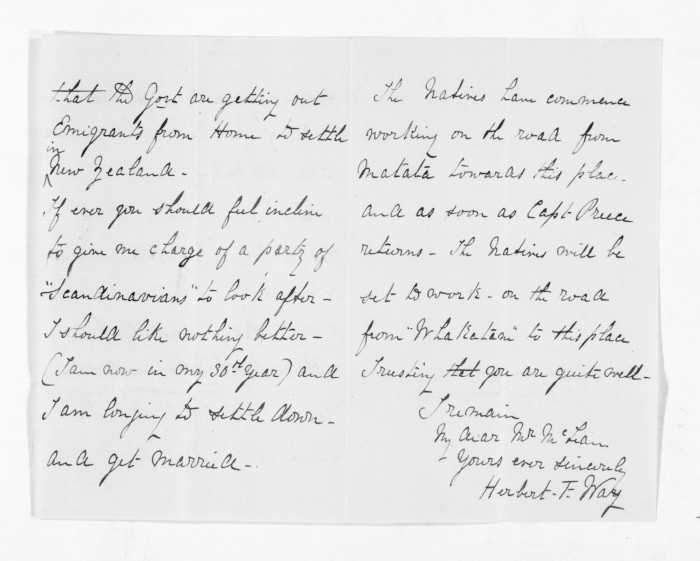 that the Govt are getting out
Emigrants from Home to settle
in
New Zealand -
If ever you should feel incline
to give me charge of a party of
"Scandinavians" to look after -
I should like nothing better -
(I am now in my 30th Year) and
I am longing to settle down -
and get married -
The Natives have commence
working on the road from
Matata towards this place -
and as soon as Capt Preece
returns - The Natives will be
set to work - on the road
from "Whakatane" to this place
Trusting that you are quite well -
I remain
My dear Mr McLean
Yours ever sincerely
Herbert. F. Way